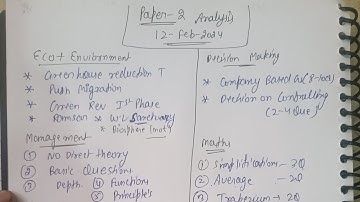 Paper-2 Analysis
12-Feb-2024
Eco + Environment
* Greenhouse reduction T
* Push Migration
* Green Rev Ist Phase
* Ramsar * W.L Sanctuary
* Biosphere (not)
Management
① No Direct theory
② Basic Questions
③ Depth ④ Functions
⑤ Principles
Decision Making
* Company Based Q (8-10Q)
* Decision on Controlling
(2-4 Que)
maths
① Simplifications - 3Q
② Average - 2Q
③ Trapezium → 2Q